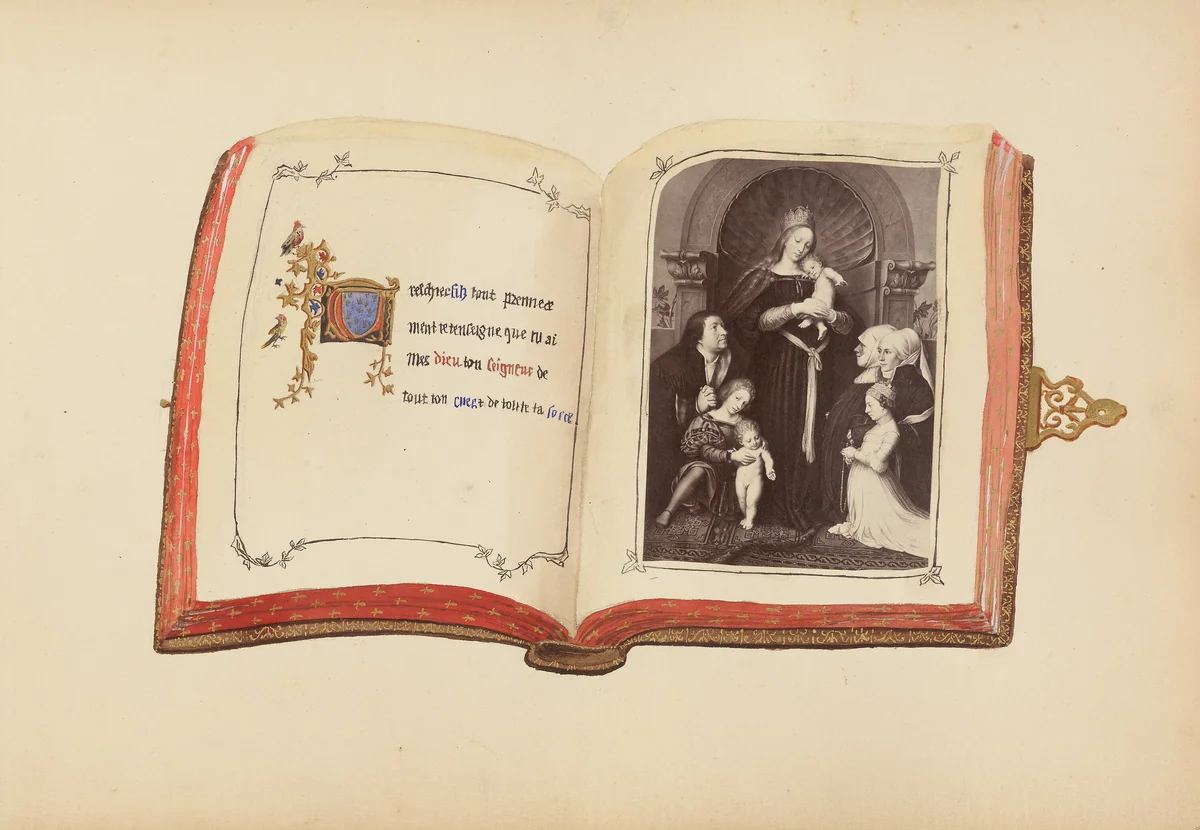 Treschierfilz tout premiere
ment te tenseigne que tu ai
mes dieu ton seigneur de
tout ton cuer et de toute ta force.